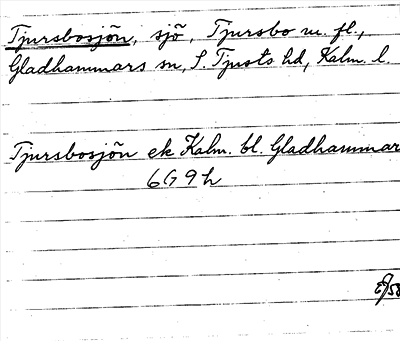 Tjursbosjön, sjö, Tjursbo m. fl.,
Gladhammars sn, S. Tjusts hd, Kalm. l.
Tjursbosjön ek Kalm. bl. Gladhammar
6G 9h
58